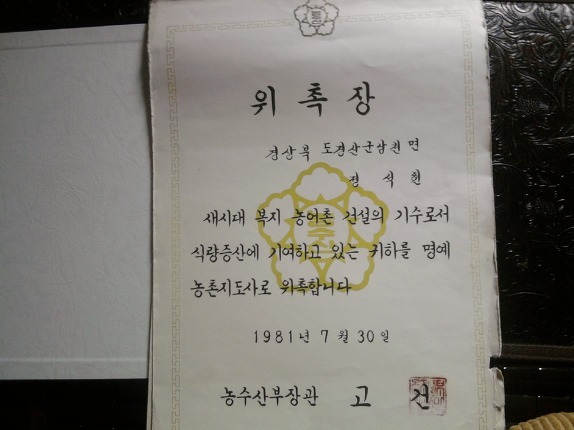 위 촉 장
경상북 도경산군남천면
정 석 헌
새시대 복지 농어촌 건설의 기수로서
식량증산에 기여하고 있는 귀하를 명예
농촌지도사로 위촉합니다
1981년 7월 30일
농수산부장관 고 건